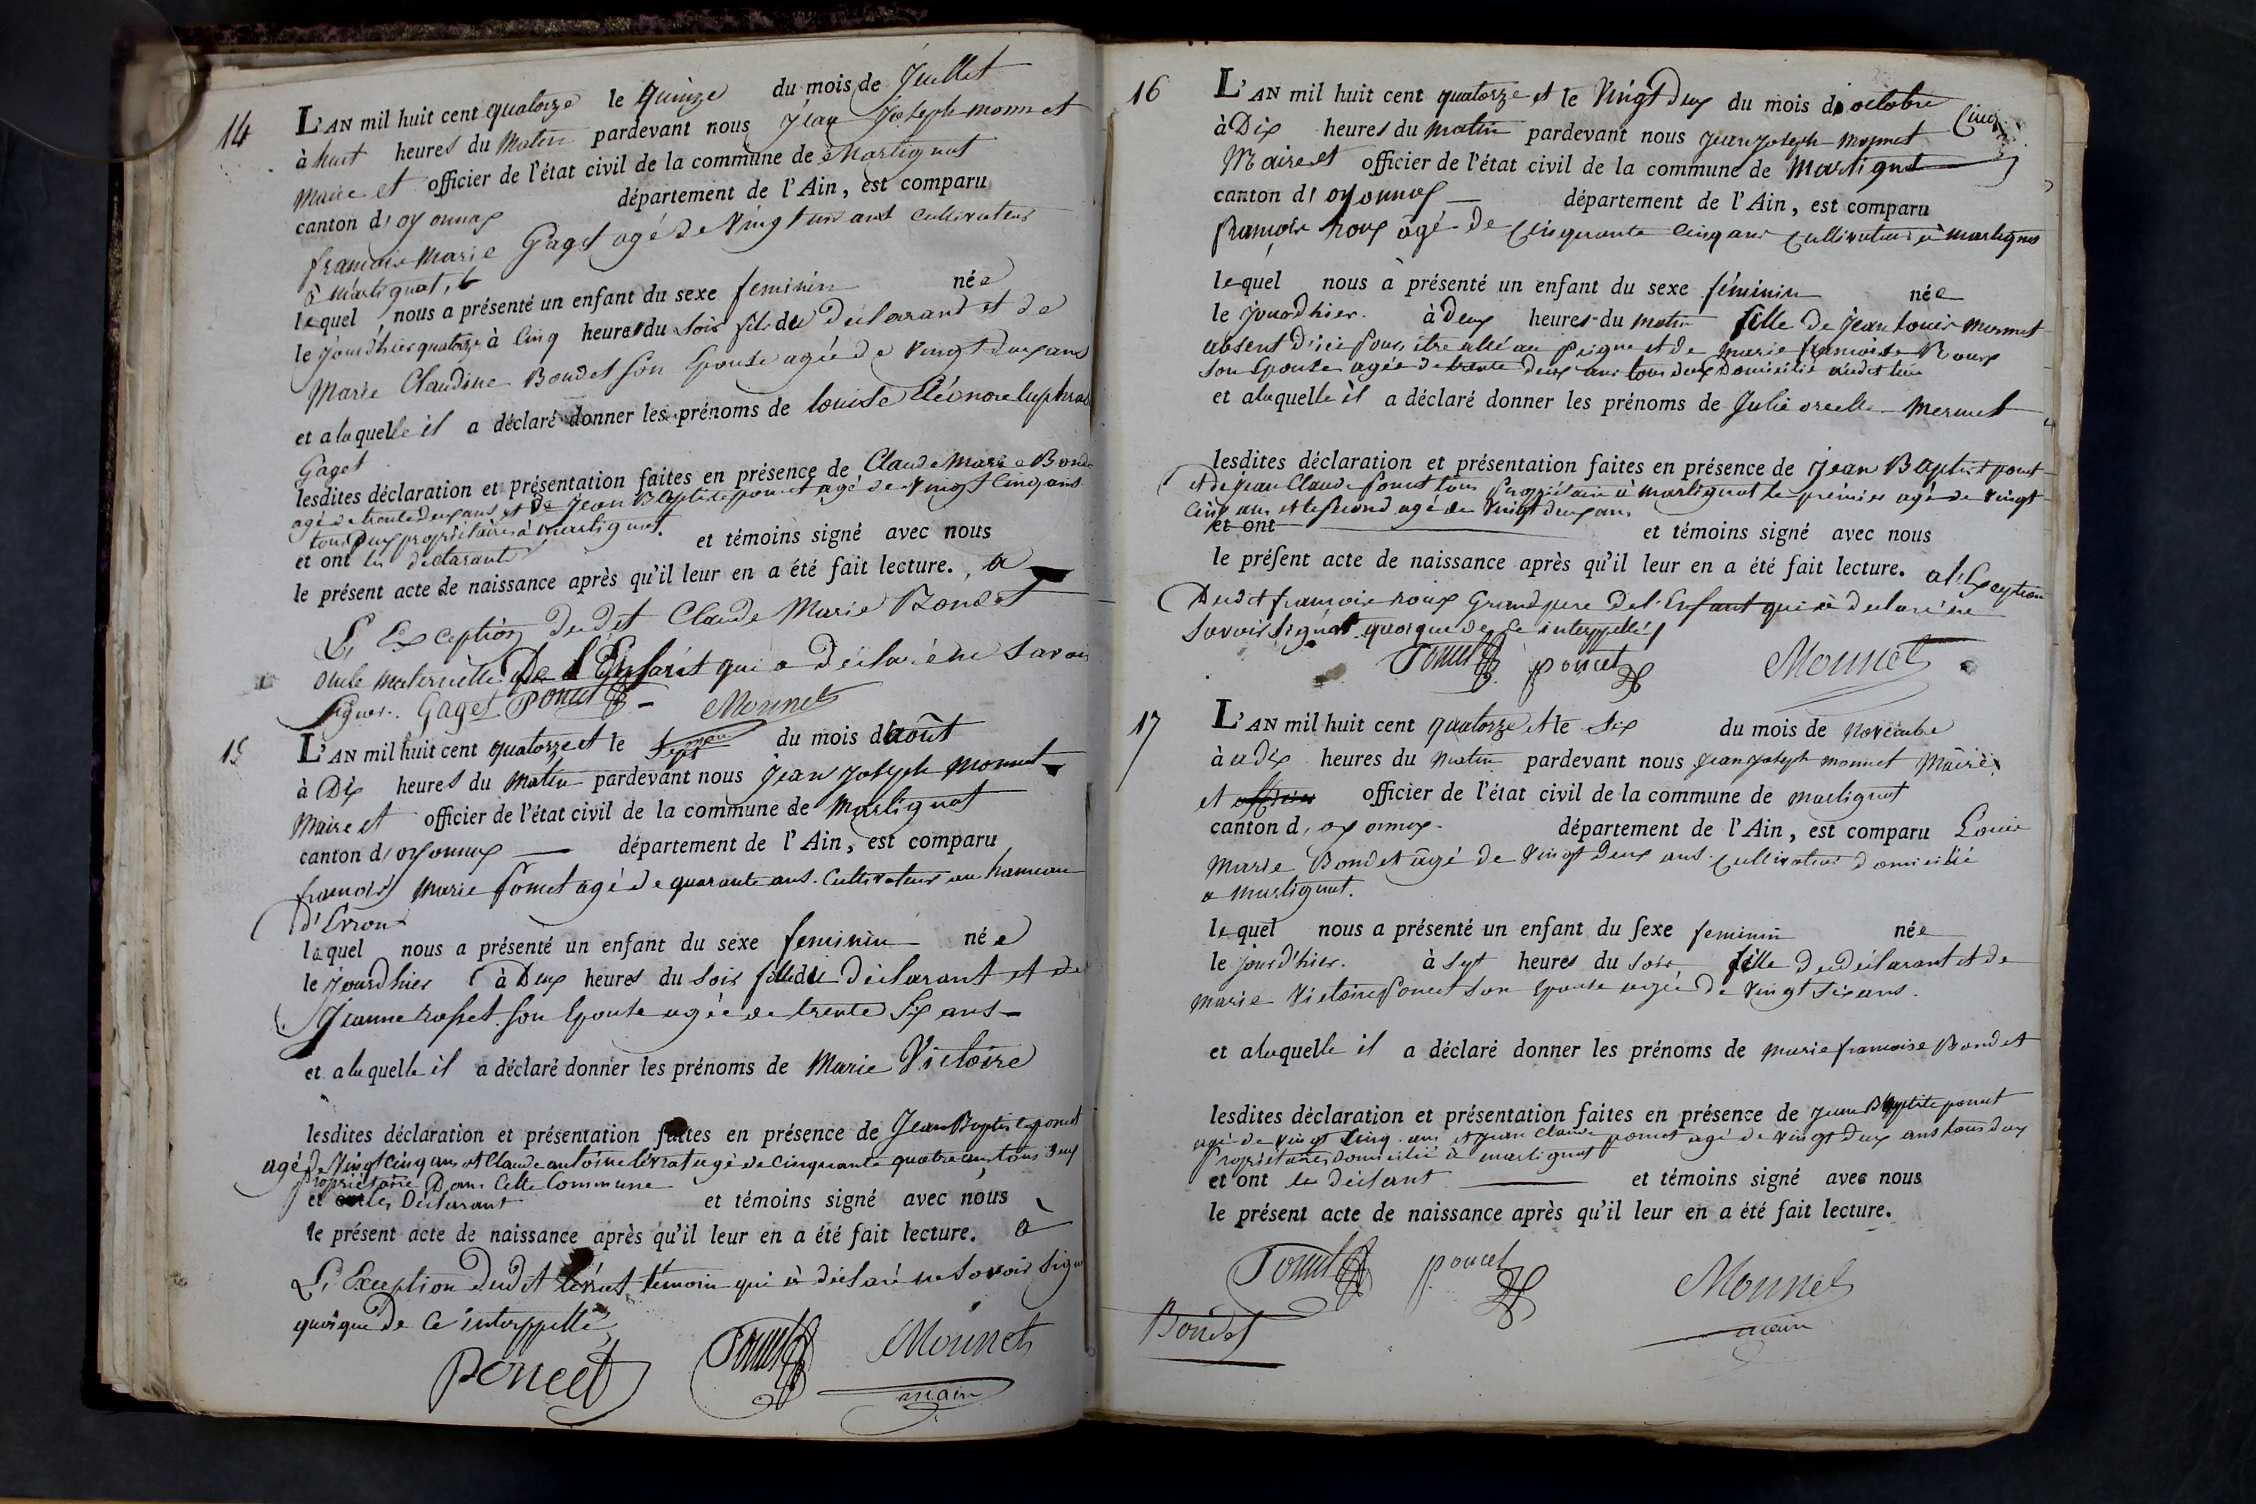 14
L'AN mil huit cent quatorze le quinze du mois de Juillet
à huit heures du matin pardevant nous Jean Joseph monnet
maire et officier de l'état civil de la commune de Martignat
canton d'oyonnax département de l'Ain, est comparu
françois Marie Gaget agé de vingt un ans cultivateur
à Martignat,
lequel nous a présenté un enfant du sexe feminin née
le jourdhier quatorze à Cinq heures du soir fille du declarant et de
Marie Claudine Bondet son Epouse agée de vingt deux ans
et a laquelle il a déclaré donner les prénoms de louise Eléonore
Gaget
lesdites déclaration et présentation faites en présence de Claude Marie Bondet
agé de trente deux ans et de Jean Baptiste poncet agé de vingt Cinq ans
tous Deux propriétaires à martignat.
et ont les declarants et témoins signé avec nous
le présent acte de naissance après qu'il leur en a été fait lecture. a
L'Exception dudit Claude Marie Bondet
oncle maternelle De l'Enfant qui a déclaré ne savoir
signer. Gaget Poncet Monnet
maire
15
L'AN mil huit cent quatorze et le Sept du mois d'août
à Dix heures du matin pardevant nous Jean Joseph Monnet
Maire et officier de l'état civil de la commune de Martignat
canton d'oyonnax département de l'Ain, est comparu
françois Marie Poncet agé de quarante ans. Cultivateur au hameau
d'Evron
lequel nous a présenté un enfant du sexe feminin née
le jourdhier à Deux heures du soir fille du déclarant et de
Jeanne rosset son Epouse agée de trente Six ans
et a laquelle il a déclaré donner les prénoms de Marie Victoire
lesdites déclaration et présentation faites en présence de Jean Baptiste poncet
agé De Vingt cinq ans et Claude antoine levrat agé de Cinquante quatre ans, tous deux
propriétaire Dans Cette Commune
et ont les Déclarant et témoins signé avec nous
le présent acte de naissance après qu'il leur en a été fait lecture. à
L'Exception dudit levrat témoin qui à déclaré ne savoir signer
quoique De Ce interppellé
Poncet Poncet Monnet
maire
16
L'AN mil huit cent quatorze et le Vingt Deux du mois d'octobre
à Dix heures du matin pardevant nous Jean Joseph Monnet
Maire et officier de l'état civil de la commune de Martignat
canton d'oyonnax département de l'Ain, est comparu
françois roux âgé de Cinquante Cinq ans Cultivateur à martignat
lequel nous a présenté un enfant du sexe féminin née
le jourdhier. à Deux heures du matin fille de Jean louis mermet
absent d'ici pour etre allé au peigne et de marie françoise Roux
son Epouse agée de trente deux ans tous deux Domicilié audit lieu
et alaquelle il a déclaré donner les prénoms de Julie Mermet
lesdites déclaration et présentation faites en présence de Jean Baptist poncet
et de Jean Claude Poncet tous propriétaire à martignat le premier agé de vingt
Cinq ans et le second agé de Vingt deux ans
et ont et témoins signé avec nous
le présent acte de naissance après qu'il leur en a été fait lecture. a l'Exception
Dudit françois roux Grand pere De l'Enfant qui à declaré ne
savoir signer quoique de Ce interppellé
Poncet poncet Monnet
17
L'AN mil huit cent quatorze et le Six du mois de Novembre
à a dix heures du matin pardevant nous Jean Joseph monnet Maire
et officier officier de l'état civil de la commune de martignat
canton d'oyonnax. département de l'Ain, est comparu Louis
Marie Bondet âgé de Vingt Deux ans. Cultivateur domicilié
a Martignat.
lequel nous a présenté un enfant du sexe feminin née
le jourd'hier. à sept heures du soir fille du déclarant et de
Marie Victoire Poncet son Epouse agée De Vingt Six ans.
et alaquelle il a déclaré donner les prénoms de Marie françoise Bondet
lesdites déclaration et présentation faites en présence de Jean Baptiste poncet
agé de Vingt Cinq ans et Jean Claude poncet agé de Vingt Deux ans tous deux
Propriétaires domicilié à martignat
et ont le déclarant et témoins signé avec nous
le présent acte de naissance après qu'il leur en a été fait lecture.
Poncet poncet Monnet
maire
Bondet